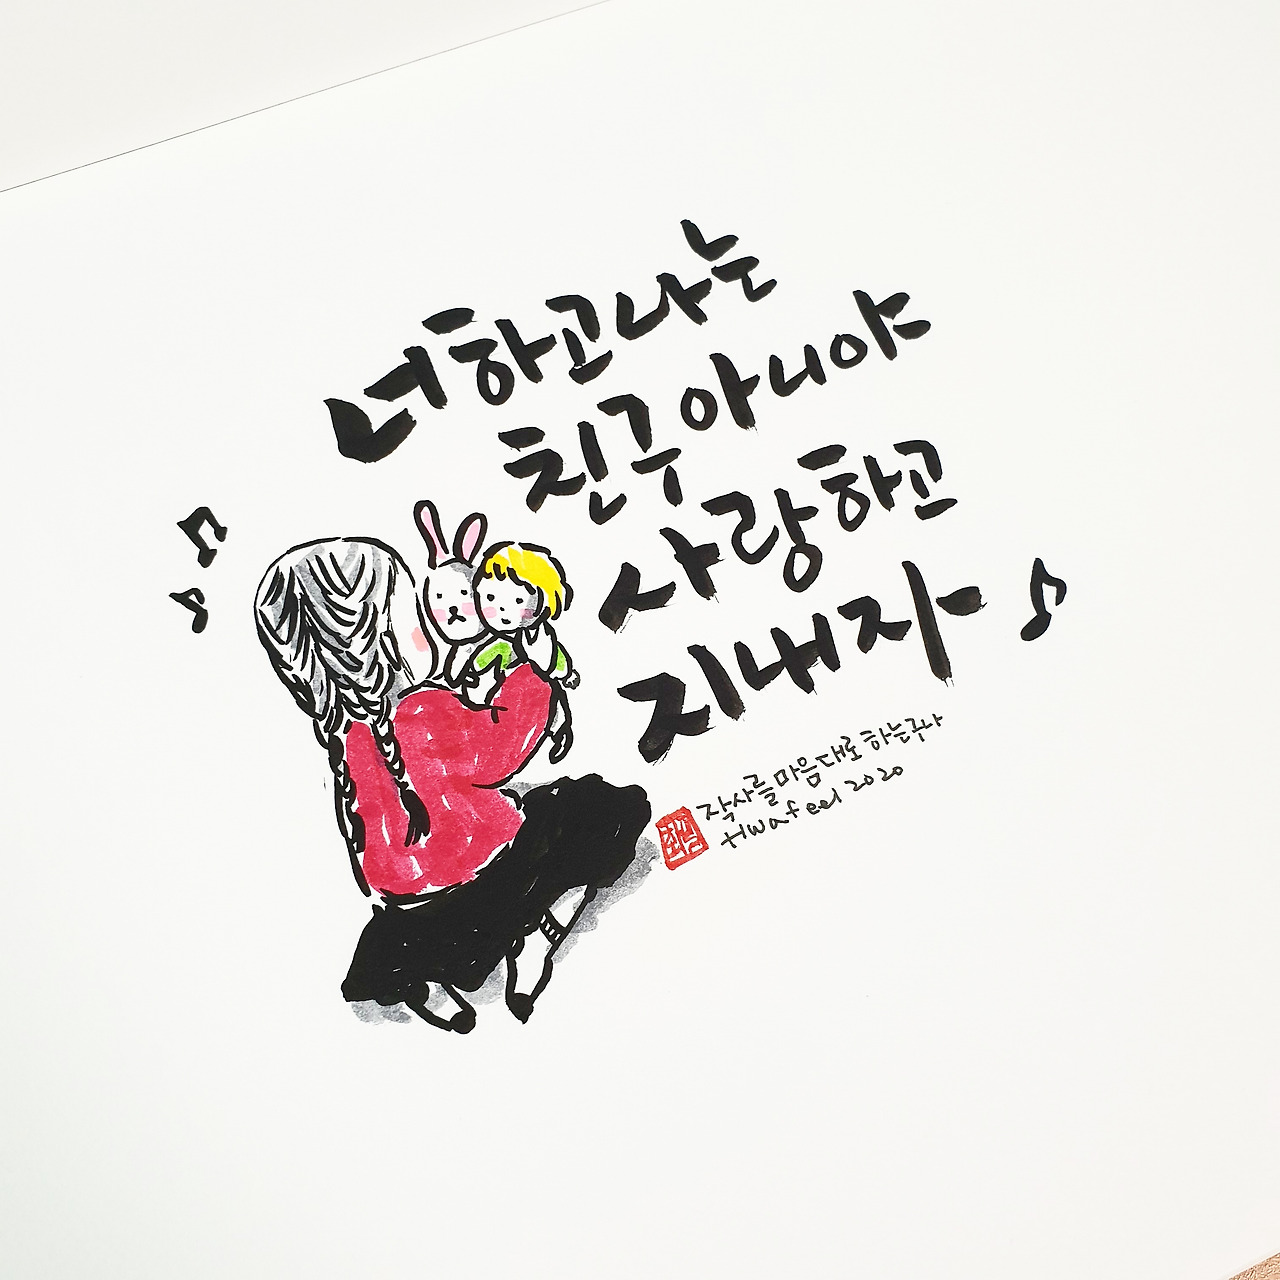 너하고나는
친구아니야
사랑하고
지내자
작사를마음대로 하는구나
Hwafeel 2020